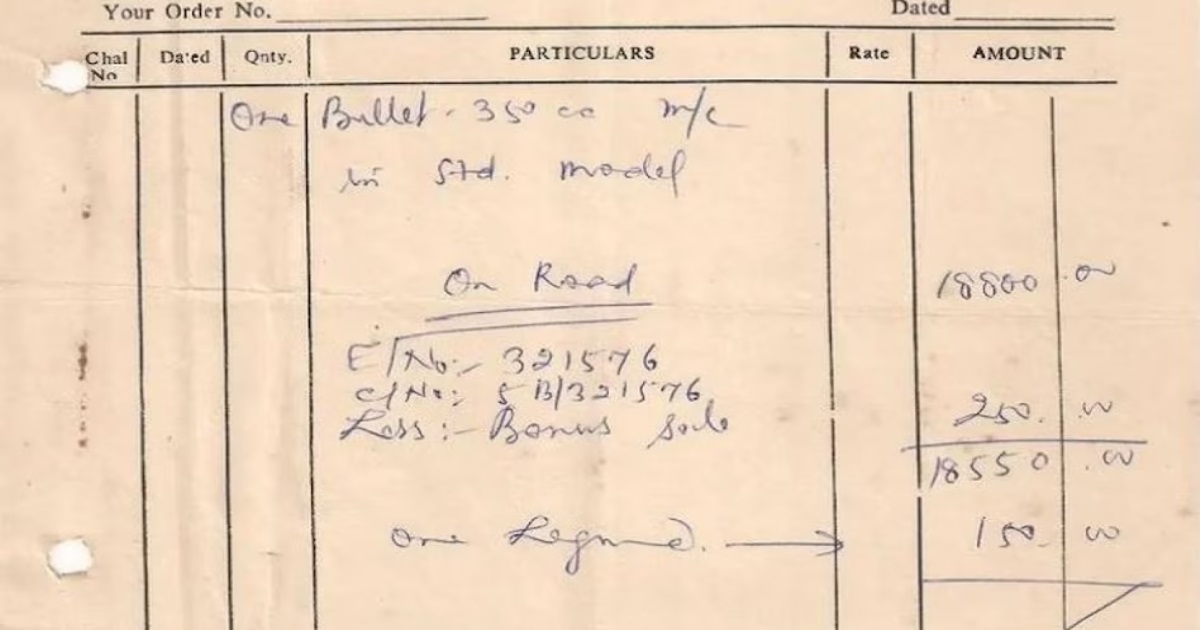 Your Order No. Dated
Chal No Dated Qnty. PARTICULARS Rate AMOUNT
One Bullet - 350 cc m/c
in Std. model
On Road 18800 .00
E/No:- 321576
c/No:- 5 B/321576
Less :- Bonus sale 250. .00
18550 .00
One Legguard. → 150. 00